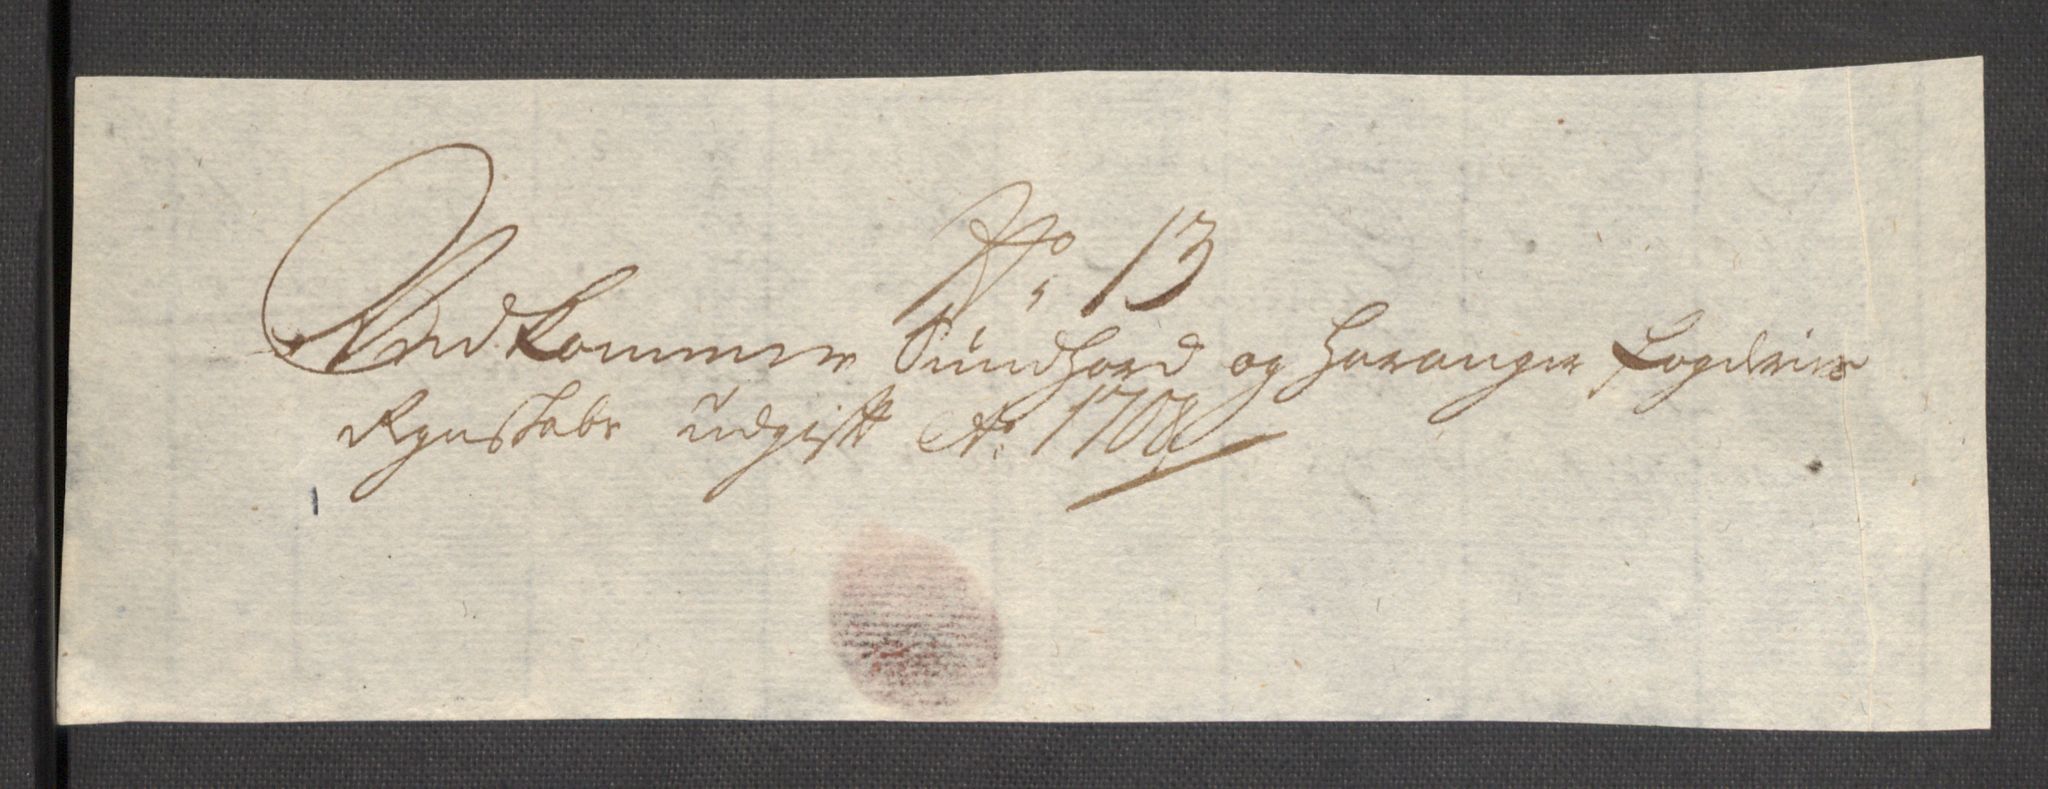 No: 13
Vedkommer Sundhord og Haranger Fogderies
Regnskabs Udgift Ao: 1708